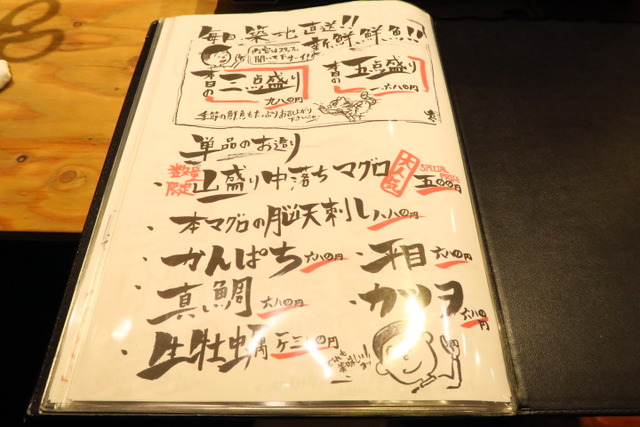 毎日築地直送!! 新鮮鮮魚!!!
内容はスタッフに聞いて下サーイ!!
本日の三点盛り 九八〇円
本日の五点盛り 一、六八〇円
季節の鮮魚をたっぷりお召し上がり下さいませ
単品のお造り
数量限定 山盛り中落ちマグロ 大人気 SPECIAL PRICE 五〇〇円
・本マグロの脳天刺し 八八〇円
・かんぱち 六八〇円 ・平目 六八〇円
・真鯛 六八〇円 ・カツヲ 六八〇円
・生牡蠣 一ケ三八〇円
とても美味しい!!